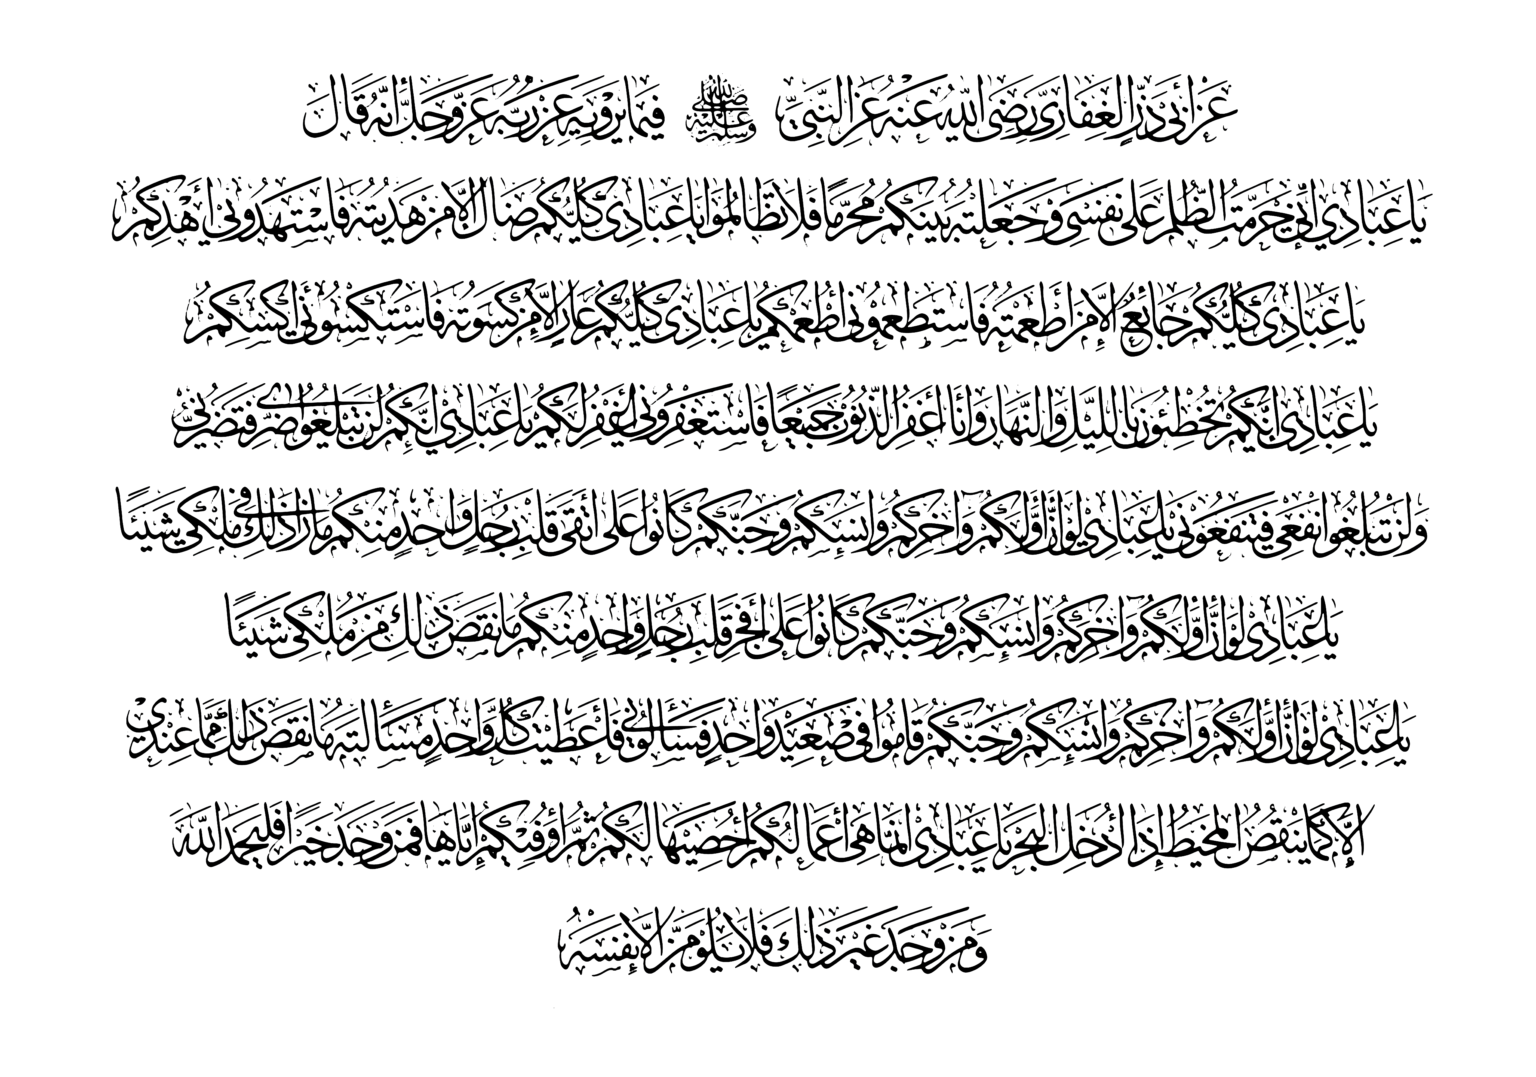 عن أبي ذر الغفاري رضي الله عنه عن النبي صلى الله عليه وسلم فيما يرويه عن ربه عز وجل أنه قال
يا عبادي إني حرمت الظلم على نفسي وجعلته بينكم محرما فلا تظالموا يا عبادي كلكم ضال إلا من هديته فاستهدوني أهدكم
يا عبادي كلكم جائع إلا من أطعمته فاستطعموني أطعمكم يا عبادي كلكم عار إلا من كسوته فاستكسوني أكسكم
يا عبادي إنكم تخطئون بالليل والنهار وأنا أغفر الذنوب جميعا فاستغفروني أغفر لكم يا عبادي إنكم لن تبلغوا ضري فتضروني
ولن تبلغوا نفعي فتنفعوني يا عبادي لو أن أولكم وآخركم وإنسكم وجنكم كانوا على أتقى قلب رجل واحد منكم ما زاد ذلك في ملكي شيئا
يا عبادي لو أن أولكم وآخركم وإنسكم وجنكم كانوا على أفجر قلب رجل واحد منكم ما نقص ذلك من ملكي شيئا
يا عبادي لو أن أولكم وآخركم وإنسكم وجنكم قاموا في صعيد واحد فسألوني فأعطيت كل واحد مسألته ما نقص ذلك مما عندي
إلا كما ينقص المخيط إذا أدخل البحر يا عبادي إنما هي أعمالكم أحصيها لكم ثم أوفيكم إياها فمن وجد خيرا فليحمد الله
ومن وجد غير ذلك فلا يلومن إلا نفسه